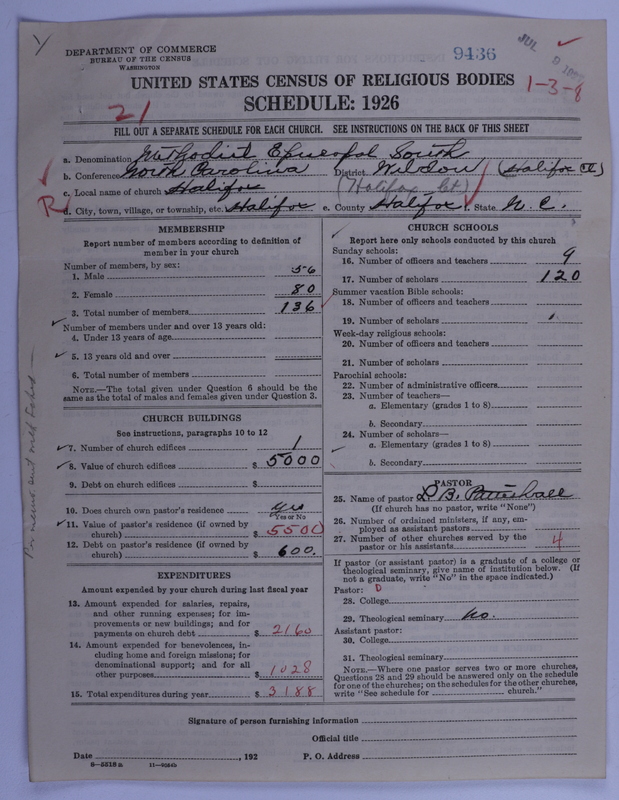 DEPARTMENT OF COMMERCE
BUREAU OF THE CENSUS
WASHINGTON
9436
JUL
1-3-8
UNITED STATES CENSUS OF RELIGIOUS BODIES
SCHEDULE: 1926
21
FILL OUT A SEPARATE SCHEDULE FOR EACH CHURCH. SEE INSTRUCTIONS ON THE BACK OF THIS SHEET
a. Denomination Methodist Episcopal South
b. Conference North Carolina District Weldon (Halifax Ct)
c. Local name of church Halifax (Halifax Ct)
R
d. City, town, village, or township, etc. Halifax e. County Halifax f. State N. C.
MEMBERSHIP
Report number of members according to definition of
member in your church
Number of members, by sex:
1. Male 56
2. Female 80
3. Total number of members 136
Number of members under and over 13 years old:
4. Under 13 years of age
5. 13 years old and over
6. Total number of members
NOTE.—The total given under Question 6 should be the
same as the total of males and females given under Question 3.
CHURCH BUILDINGS
See instructions, paragraphs 10 to 12
7. Number of church edifices 1
8. Value of church edifices $ 5000
9. Debt on church edifices $
10. Does church own pastor's residence yes
Yes or No
11. Value of pastor's residence (if owned by
church) $ 5500
12. Debt on pastor's residence (if owned by
church) $ 600.
EXPENDITURES
Amount expended by your church during last fiscal year
13. Amount expended for salaries, repairs,
and other running expenses; for im-
provements or new buildings; and for
payments on church debt $ 2160
14. Amount expended for benevolences, in-
cluding home and foreign missions; for
denominational support; and for all
other purposes $ 1028
15. Total expenditures during year $ 3188
CHURCH SCHOOLS
Report here only schools conducted by this church
Sunday schools:
16. Number of officers and teachers 9
17. Number of scholars 120
Summer vacation Bible schools:
18. Number of officers and teachers
19. Number of scholars
Week-day religious schools:
20. Number of officers and teachers
21. Number of scholars
Parochial schools:
22. Number of administrative officers
23. Number of teachers—
a. Elementary (grades 1 to 8)
b. Secondary
24. Number of scholars—
a. Elementary (grades 1 to 8)
b. Secondary
PASTOR
25. Name of pastor
(If church has no pastor, write "None")
26. Number of ordained ministers, if any, em-
ployed as assistant pastors
27. Number of other churches served by the
pastor or his assistants 4
If pastor (or assistant pastor) is a graduate of a college or
theological seminary, give name of institution below. (If
not a graduate, write "No" in the space indicated.)
Pastor: D
28. College
29. Theological seminary no.
Assistant pastor:
30. College
31. Theological seminary
NOTE.—Where one pastor serves two or more churches,
Questions 28 and 29 should be answered only on the schedule
for one of the churches; on the schedules for the other churches,
write "See schedule for church."
Signature of person furnishing information
Official title
Date , 192 P. O. Address